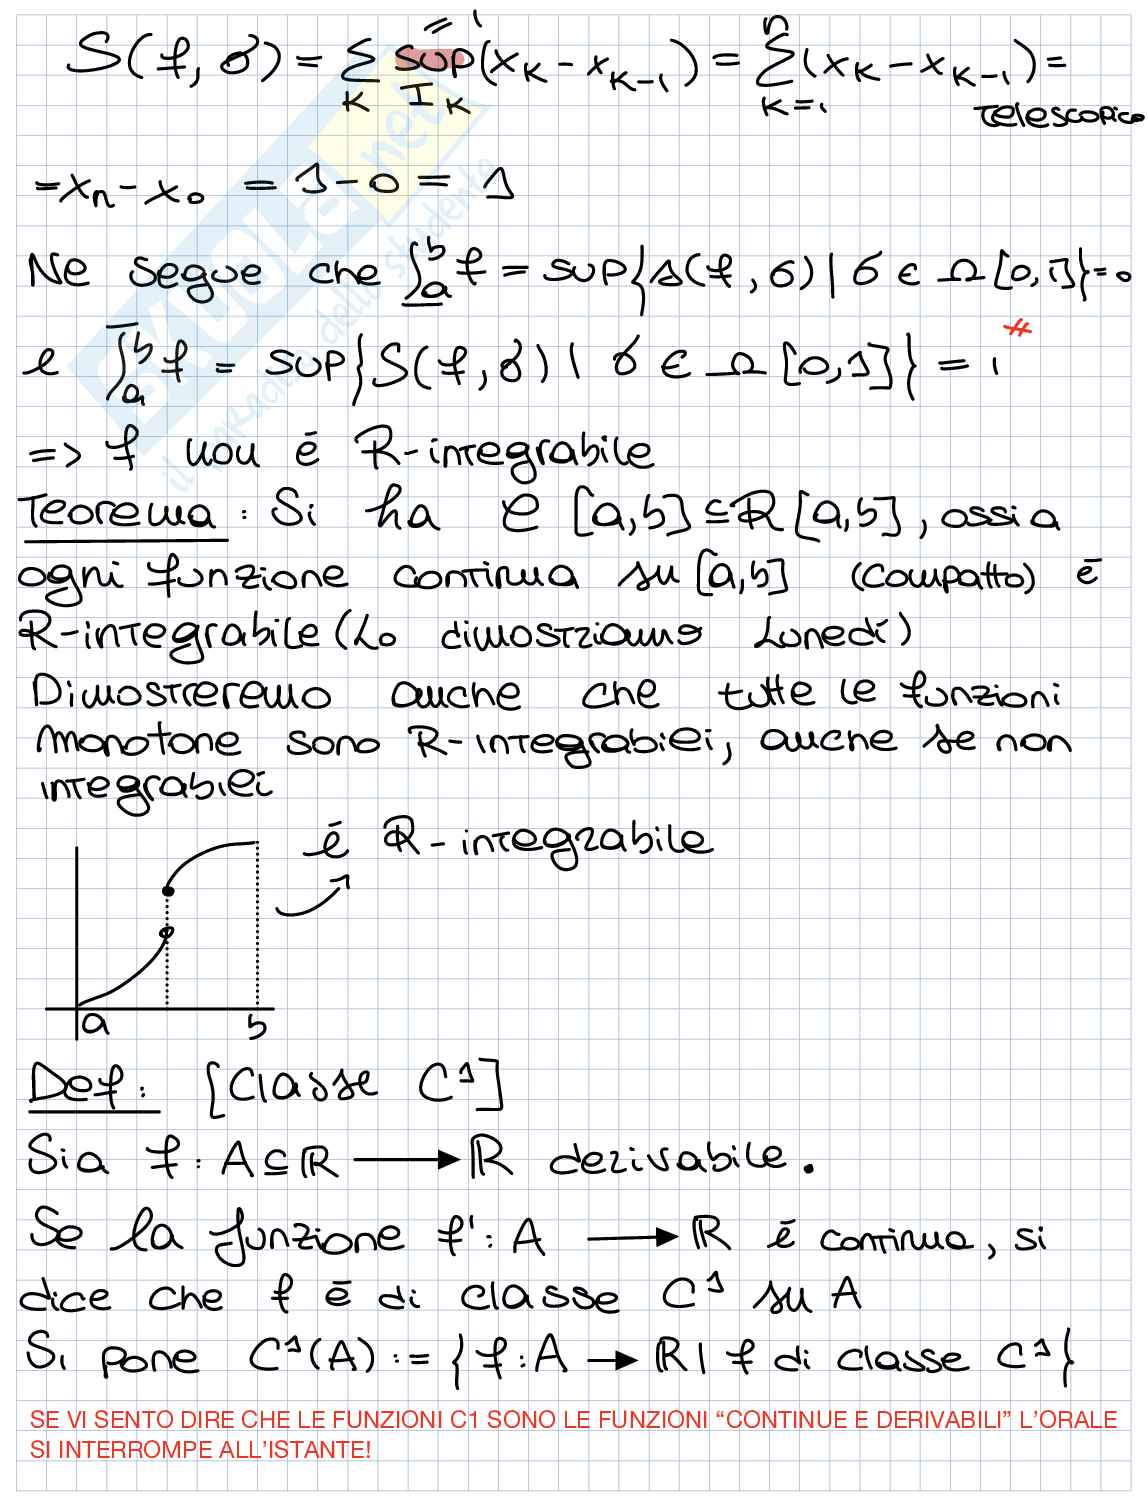 = 1 n
S(f, σ) = Σ sup (x_k - x_{k-1}) = Σ (x_k - x_{k-1}) =
K I_K K=1 Telescopica
= x_n - x_0 = 1 - 0 = 1
Ne segue che ∫_a^b f = sup{s(f, σ) | σ ∈ Ω [0,1]} = 0
e ∫_a^b f = sup{S(f, σ) | σ ∈ Ω [0,1]} = 1 #
=> f non è R-integrabile
Teorema : Si ha C [a,b] ⊆ R [a,b], ossia
ogni funzione continua su [a,b] (compatto) è
R-integrabile (Lo dimostriamo Lunedì)
Dimostreremo anche che tutte le funzioni
monotone sono R-integrabili, anche se non
integrabili
è R-integrabile
a b
Def: [Classe C^1]
Sia f : A ⊆ ℝ → ℝ derivabile.
Se la funzione f' : A → ℝ è continua, si
dice che f è di classe C^1 su A
Si pone C^1(A) := {f : A → ℝ | f di classe C^1}
SE VI SENTO DIRE CHE LE FUNZIONI C1 SONO LE FUNZIONI “CONTINUE E DERIVABILI” L’ORALE
SI INTERROMPE ALL’ISTANTE!
SKUOLA.net
il paradiso dello studente